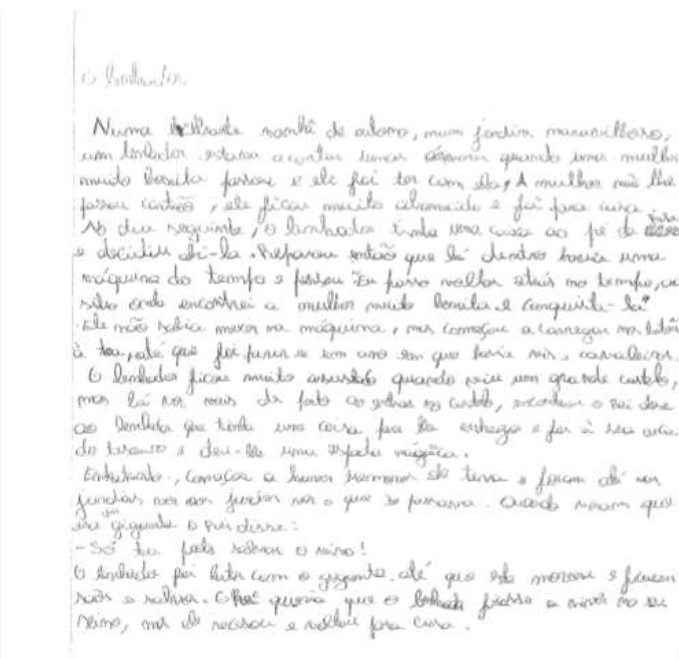 O lenhador
Numa brilhante manhã de outono, num jardim maravilhoso,
um lenhador estava a cortar umas árvores quando uma mulher
muito bonita passou e ele foi ter com ela, A mulher não lhe
passou cartão, ele ficou muito aborrecido e foi para casa.
No dia seguinte, o lenhador tinha uma caixa ao pé da
e decidiu abri-la. Reparou então que lá dentro havia uma
máquina do tempo e pensou "Eu posso voltar atrás no tempo, ao
sitio onde encontrei a mulher muito bonita e conquista-la"
Ele não sabia mexer na máquina, mas começou a carregar nos botões
à toa, até que foi parar a um ano em que havia reis e cavaleiros.
O lenhador ficou muito assustado quando viu um grande castelo,
mas lá ver mais de perto ao entrar no castelo, encontrou o rei disse
ao lenhador que tinha uma coisa para lhe entregar e foi à sua arca
do tesouro e deu-lhe uma espada mágica.
Entretanto, começou a haver tremores de terra e foram até aos
jardins ver o que se passava. Quando viram que
era um gigante o rei disse:
- Só tu podes salvar o reino!
O lenhador foi lutar com o gigante até que este morreu e ficaram
sãos e salvos. O Rei queria que o ficasse a viver no seu
reino, mas ele recusou e voltou para casa.